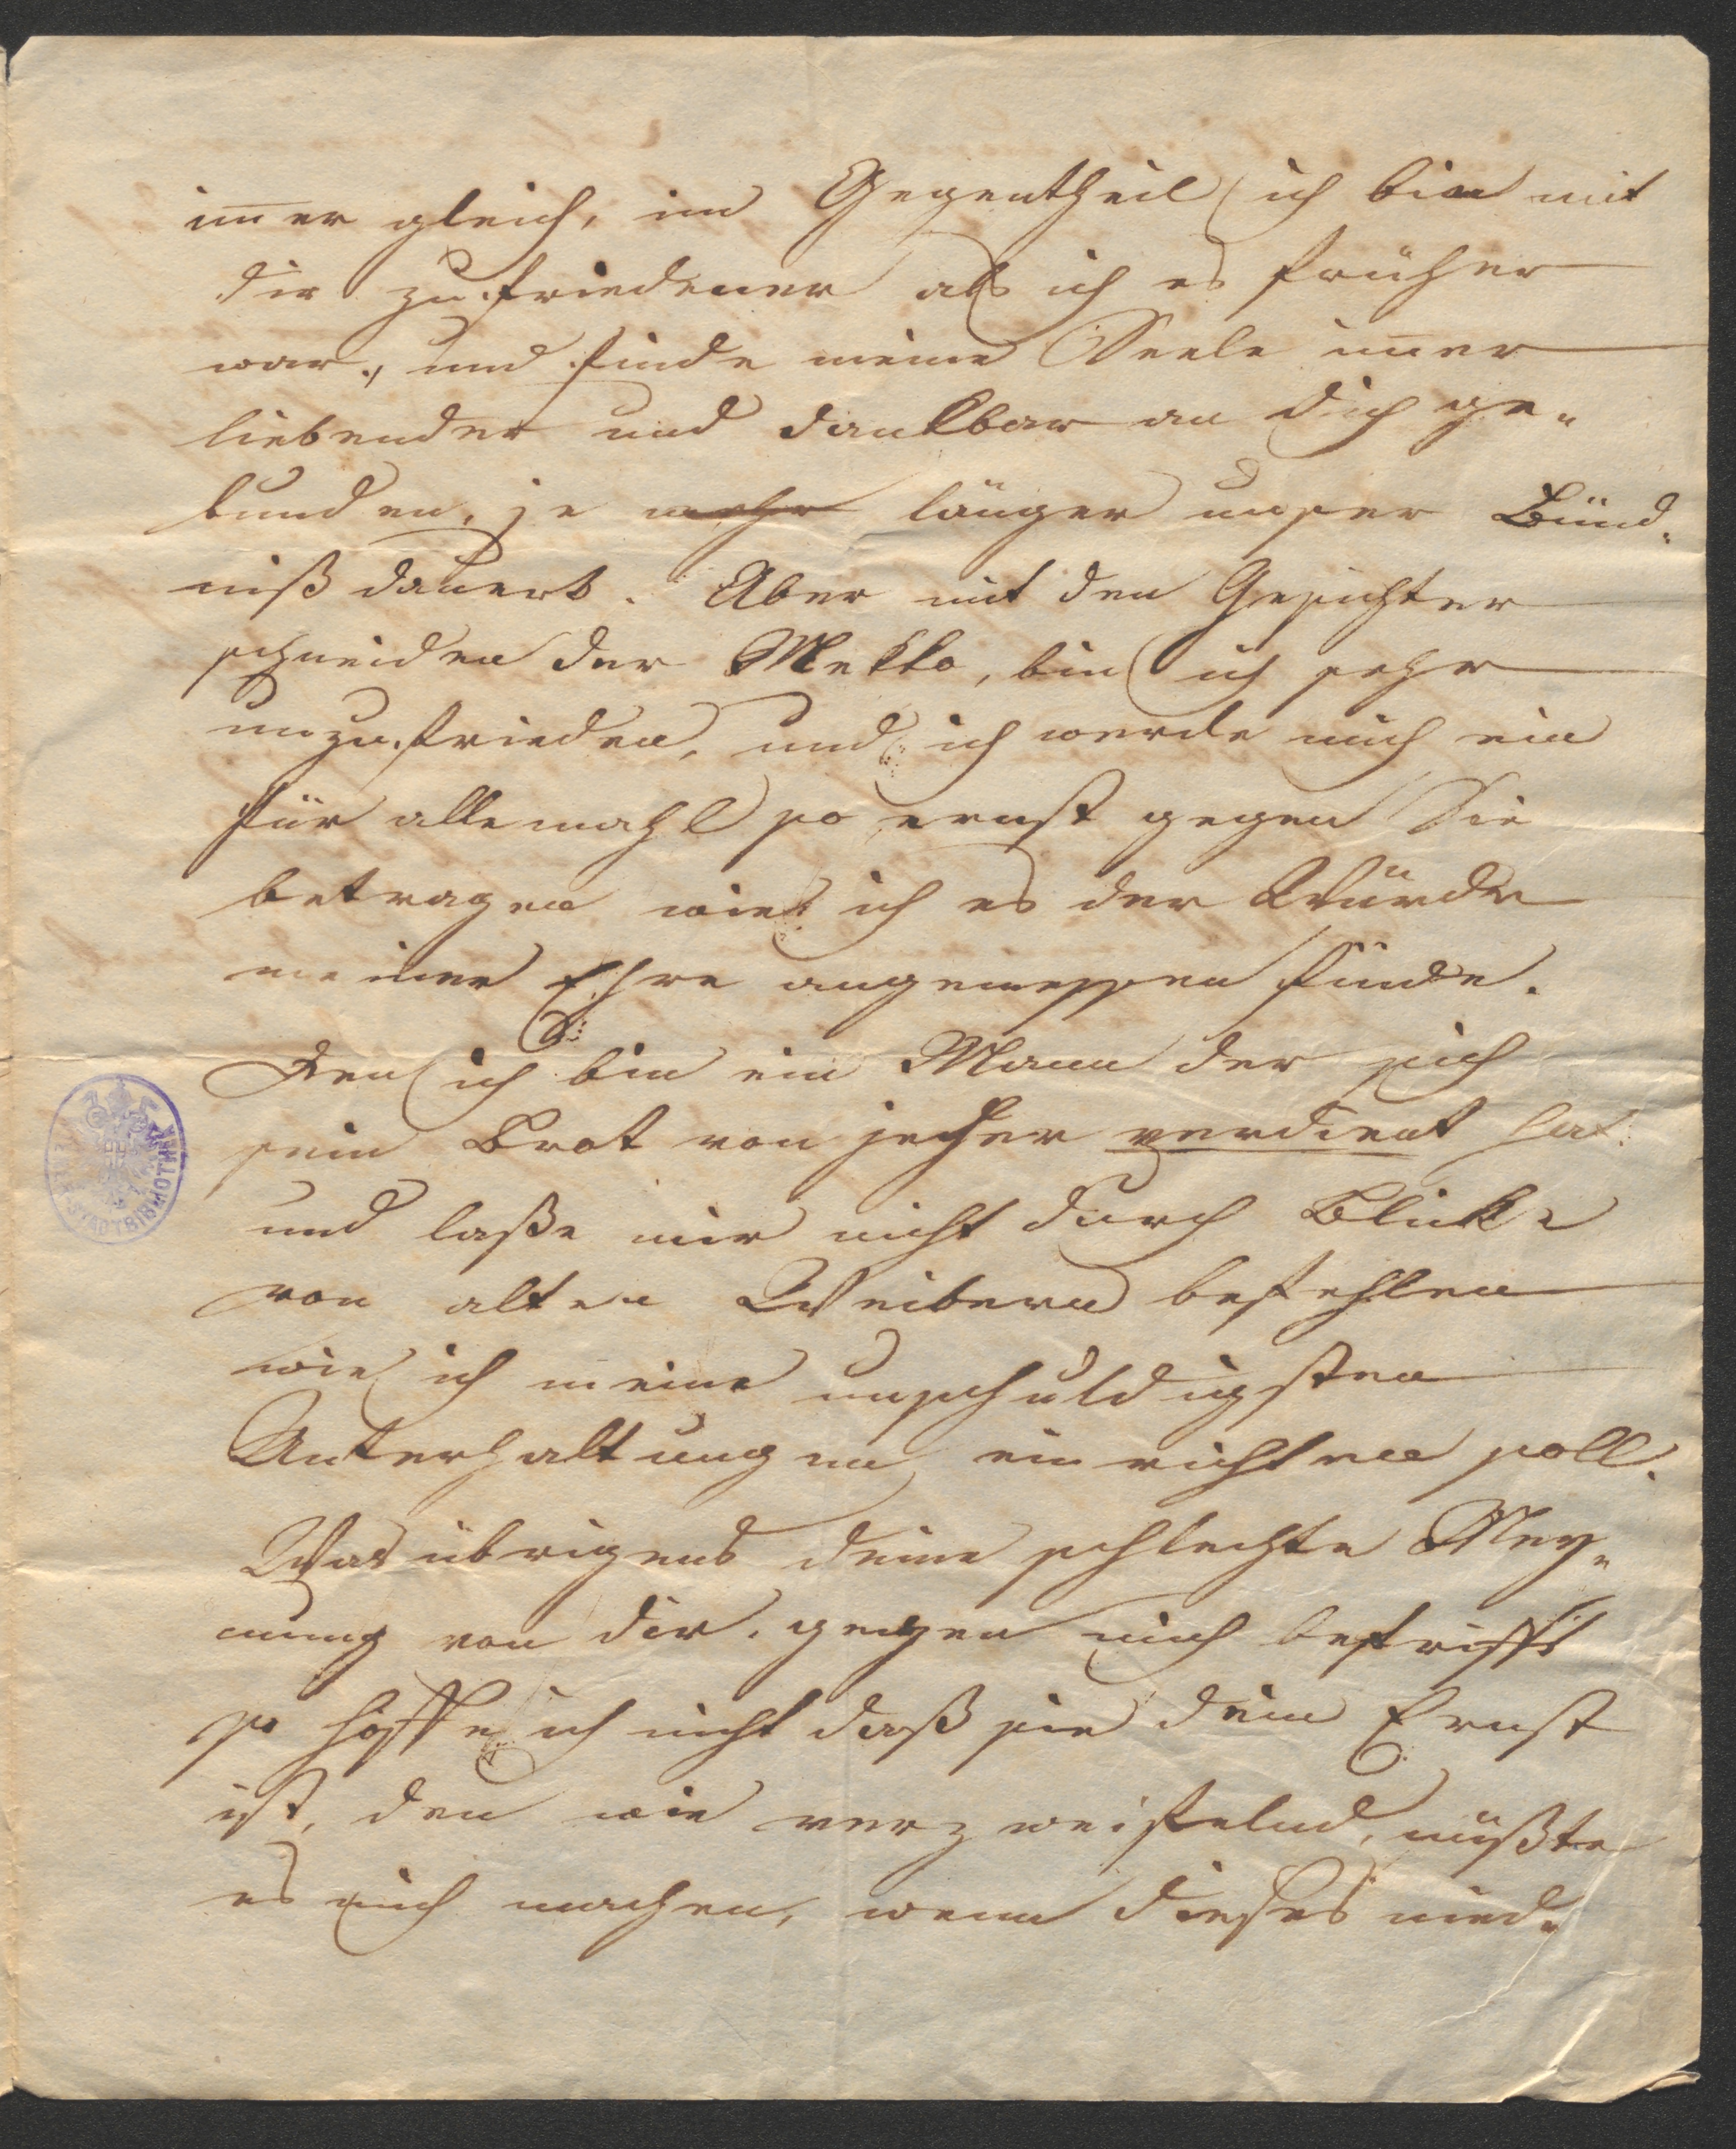 im̄er gleich, im Gegentheil ich bin mit
dir zufriedener als ich es früher
war, und finde meine Seele im̄er
liebender und dankbar an dich ge„
bunden, je mehr länger unser Bünd„
niß dauert. Aber mit den Gesichter
schneiden der Mekko, bin ich sehr
unzufrieden, und ich werde mich ein
für allemahl so ernst gegen Sie
betragen wie ich es der Würde
meiner Ehre angemessen finde.
Den ich bin ein Mann der sich
sein Brot von jeher verdient hat
und laße mir nicht durch Blicke
von alten Weibern befehlen
wie ich meine unschuldigsten
Unterhaltungen einrichten soll.
Was übrigens deine schlechte Mey„
nung von dir. gegen mich betrifft
so hoffe ich nicht daß sie dein Ernst
ist, den wie verzweifelnd, müßte
es mich machen, wenn dieses nied„
STADTBIBLIOTHEK